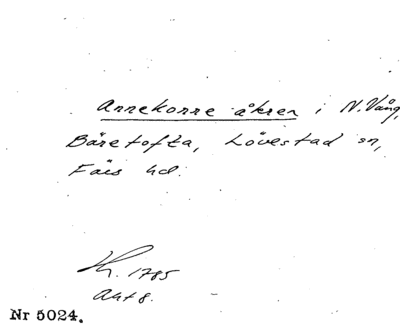 Annekonse åkren i N. Vång,
Båretofta, Lövestad sn,
Färs hd.
Kh. 1785
Akt 8.
Nr 5024.